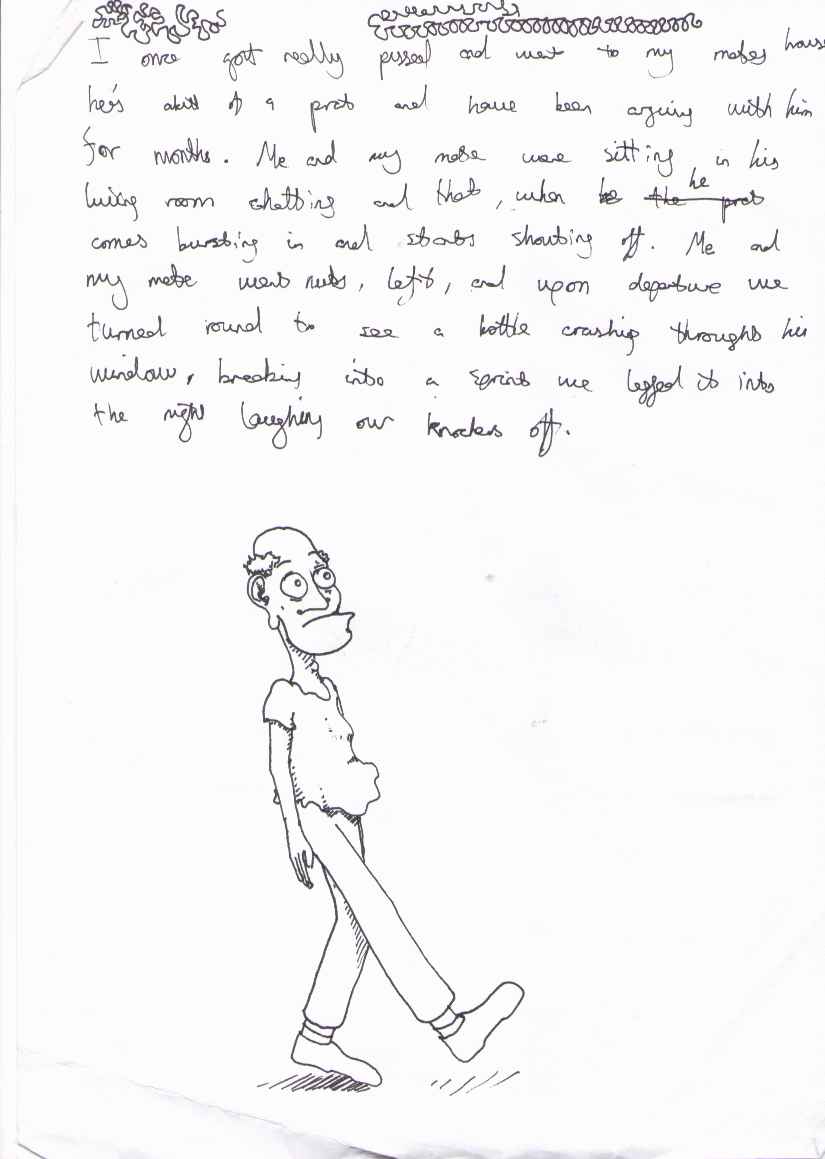 I once got really pissed and went to my mates house
he's abit of a prat and have been arguing with him
for months. Me and my mate were sitting in his
living room chatting and that, when he
comes bursting in and starts shouting off. Me and
my mate went nuts, left, and upon departure we
turned round to see a bottle crashing through his
window, breaking into a sprint we legged it into
the night laughing our knockers off.